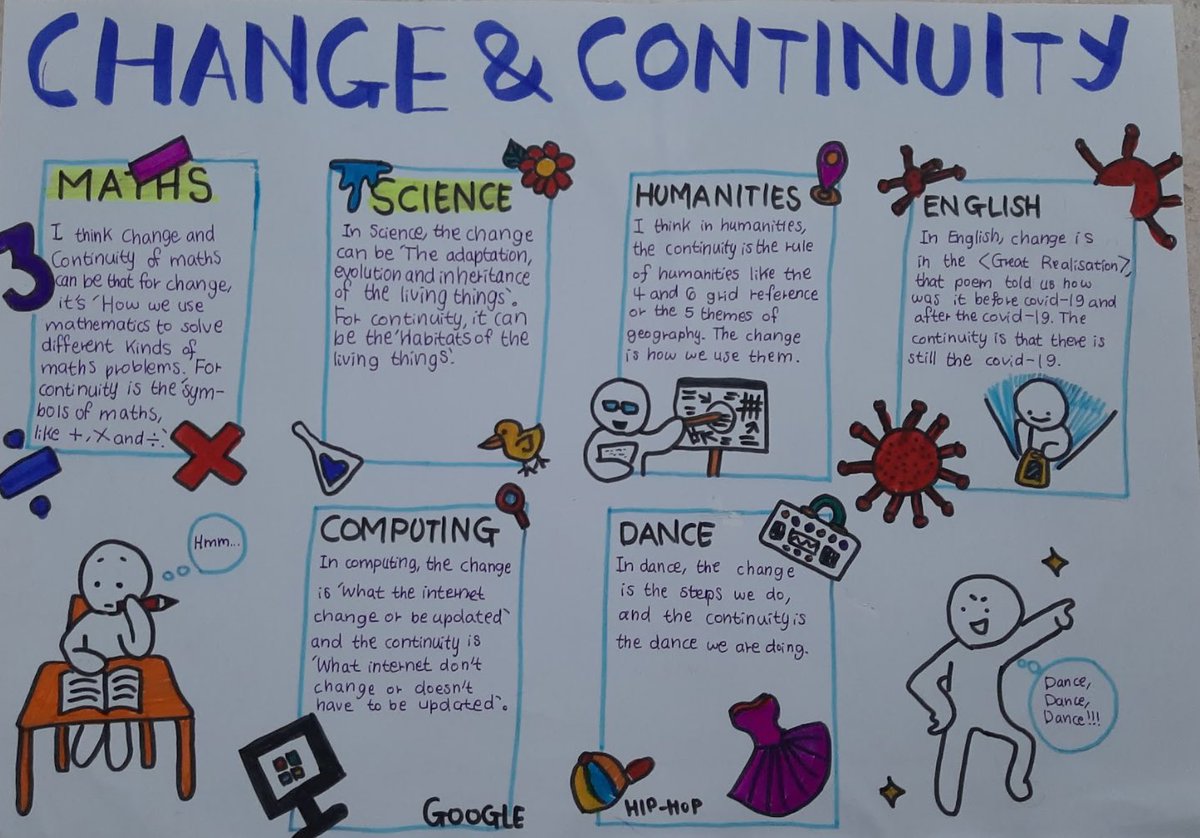 CHANGE & CONTINUITY
MATHS
I think Change and
Continuity of maths
can be that for change,
it's 'How we use
mathematics to solve
different kinds of
maths problems. For
continuity is the 'sym-
bols of maths,
like +, X and ÷.'
SCIENCE
In Science, the change
can be 'The adaptation,
evolution and inheritance
of the living things'.
For continuity, it can
be the 'Habitats of the
living things'.
HUMANITIES
I think in humanities,
the continuity is the rule
of humanities like the
4 and 6 grid reference
or the 5 themes of
geography. The change
is how we use them.
ENGLISH
In English, change is
in the <Great Realisation>,
that poem told us how
was it before covid-19 and
after the covid-19. The
continuity is that there is
still the covid-19.
3
Hmm...
COMPUTING
In computing, the change
is 'What the internet
change or be updated'
and the continuity is
'What internet don't
change or doesn't
have to be updated'.
GOOGLE
DANCE
In dance, the change
is the steps we do,
and the continuity is
the dance we are doing.
HIP-HOP
Dance,
Dance,
Dance!!!